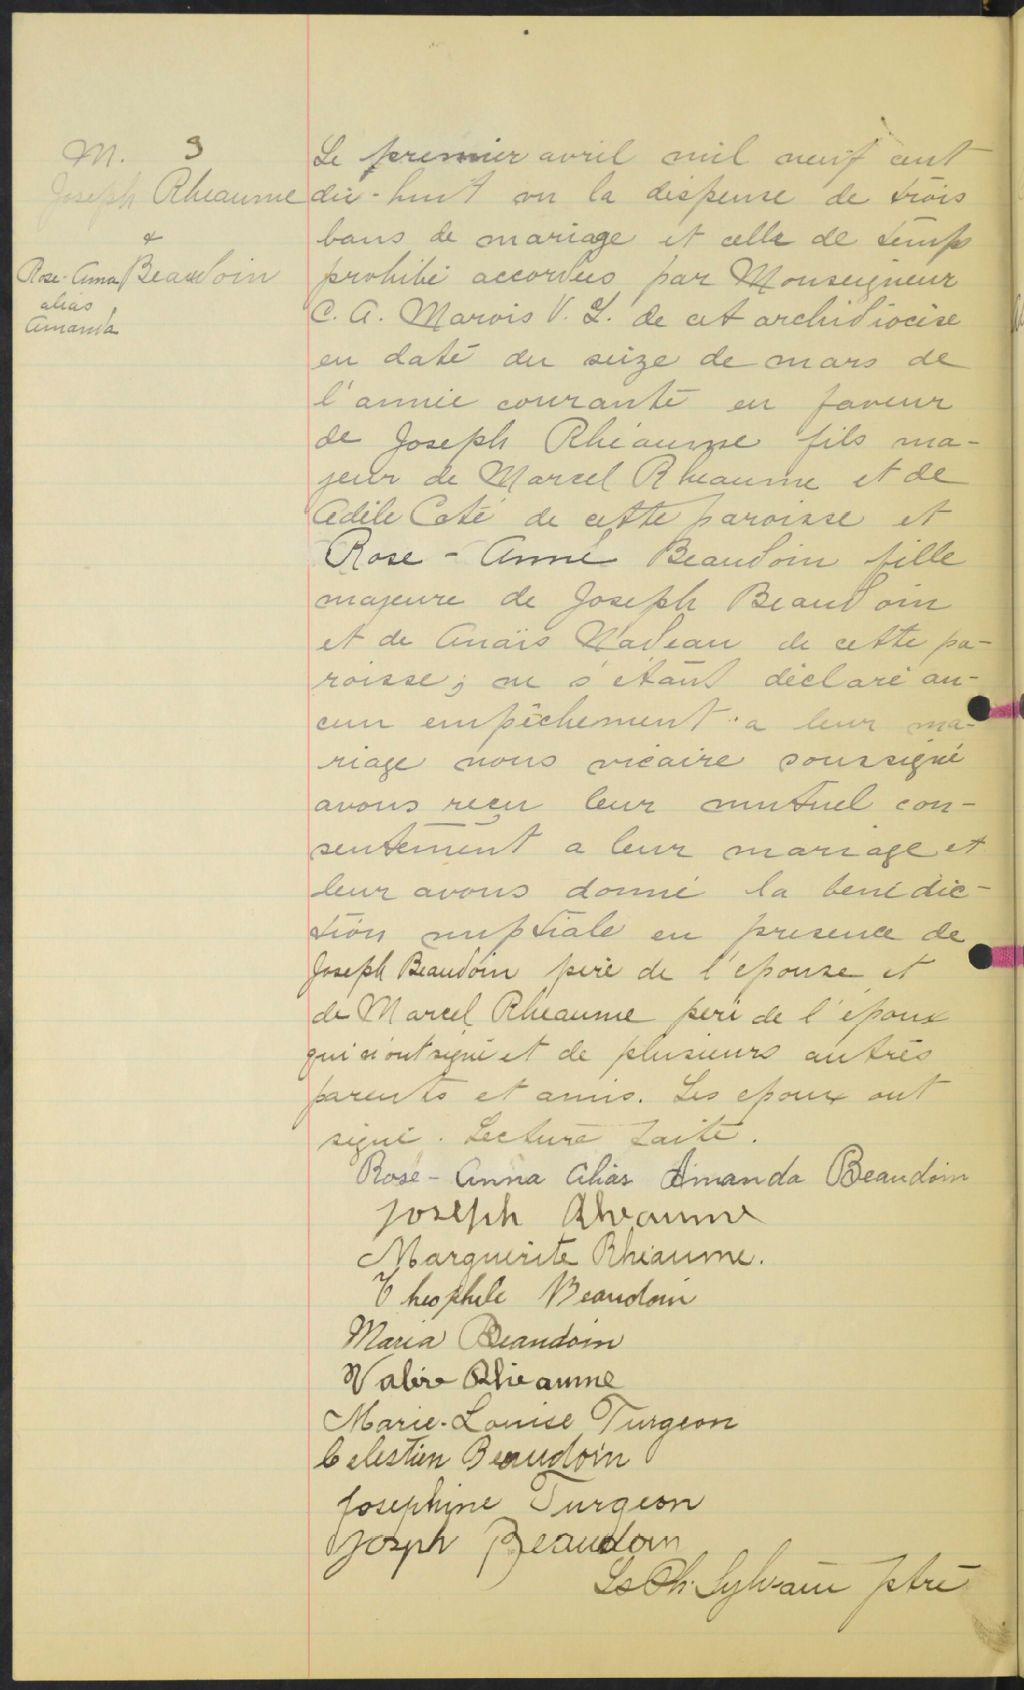 M. 3
Joseph Rheaume
&
Rose-Anna Beaudoin
alias
Amanda
Le premier avril mil neuf cent
dix-huit vu la dispense de trois
bans de mariage et celle de temps
prohibé accordées par Monseigneur
C. A. Marois V. G. de cet archidiocèse
en date du seize de mars de
l'année courante en faveur
de Joseph Rhéaume fils ma-
jeur de Marcel Rheaume et de
Adèle Coté de cette paroisse et
Rose-Anne Beaudoin fille
majeure de Joseph Beaudoin
et de Anaïs Nadeau de cette pa-
roisse; ne s'étant déclaré au-
cun empêchement a leur ma-
riage nous vicaire soussigné
avons reçu leur mutuel con-
sentement a leur mariage et
leur avons donné la bénédic-
tion nuptiale en presence de
Joseph Beaudoin père de l'épouse et
de Marcel Rheaume père de l'époux
qui n'ont signé et de plusieurs autres
parents et amis. Les epoux ont
signé. Lecture faite.
Rose-Anna Alias Amanda Beaudoin
Joseph Rheaume
Marguerite Rhéaume.
Théophile Beaudoin
Maria Beaudoin
Valère Rhéaume
Marie-Louise Turgeon
Celestien Beaudoin
Josephine Turgeon
Joseph Beaudoin
Ls Ch. Sylvain ptre